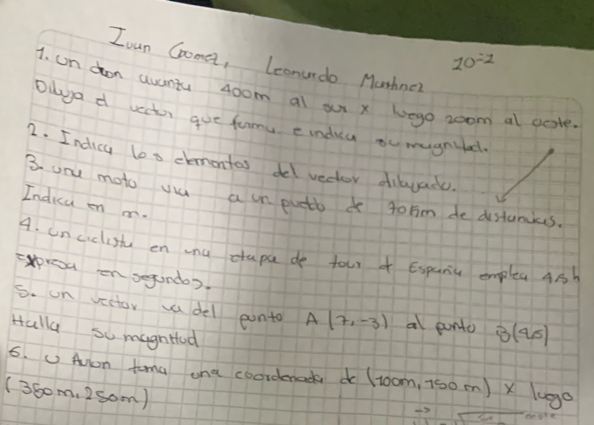 Ivan Gomez, Leonardo Martinez 10-2
1. Un dron avanza 400m al sur x luego 200m al oeste.
Dibuja el vector que forma e indica su magnitud.
2. Indica los elementos del vector dibujado.
3. una moto va a un pueblo de 90km de distancias.
Indica en m.
4. un ciclista en una etapa de tour de España emplea 4,5h
Expresa en segundos.
5. un vector va del punto A (7,-3) al punto B(4,5)
Halla su magnitud
6. U Avion toma una coordenada de (100m, 150m) x luego
(350m, 250m)